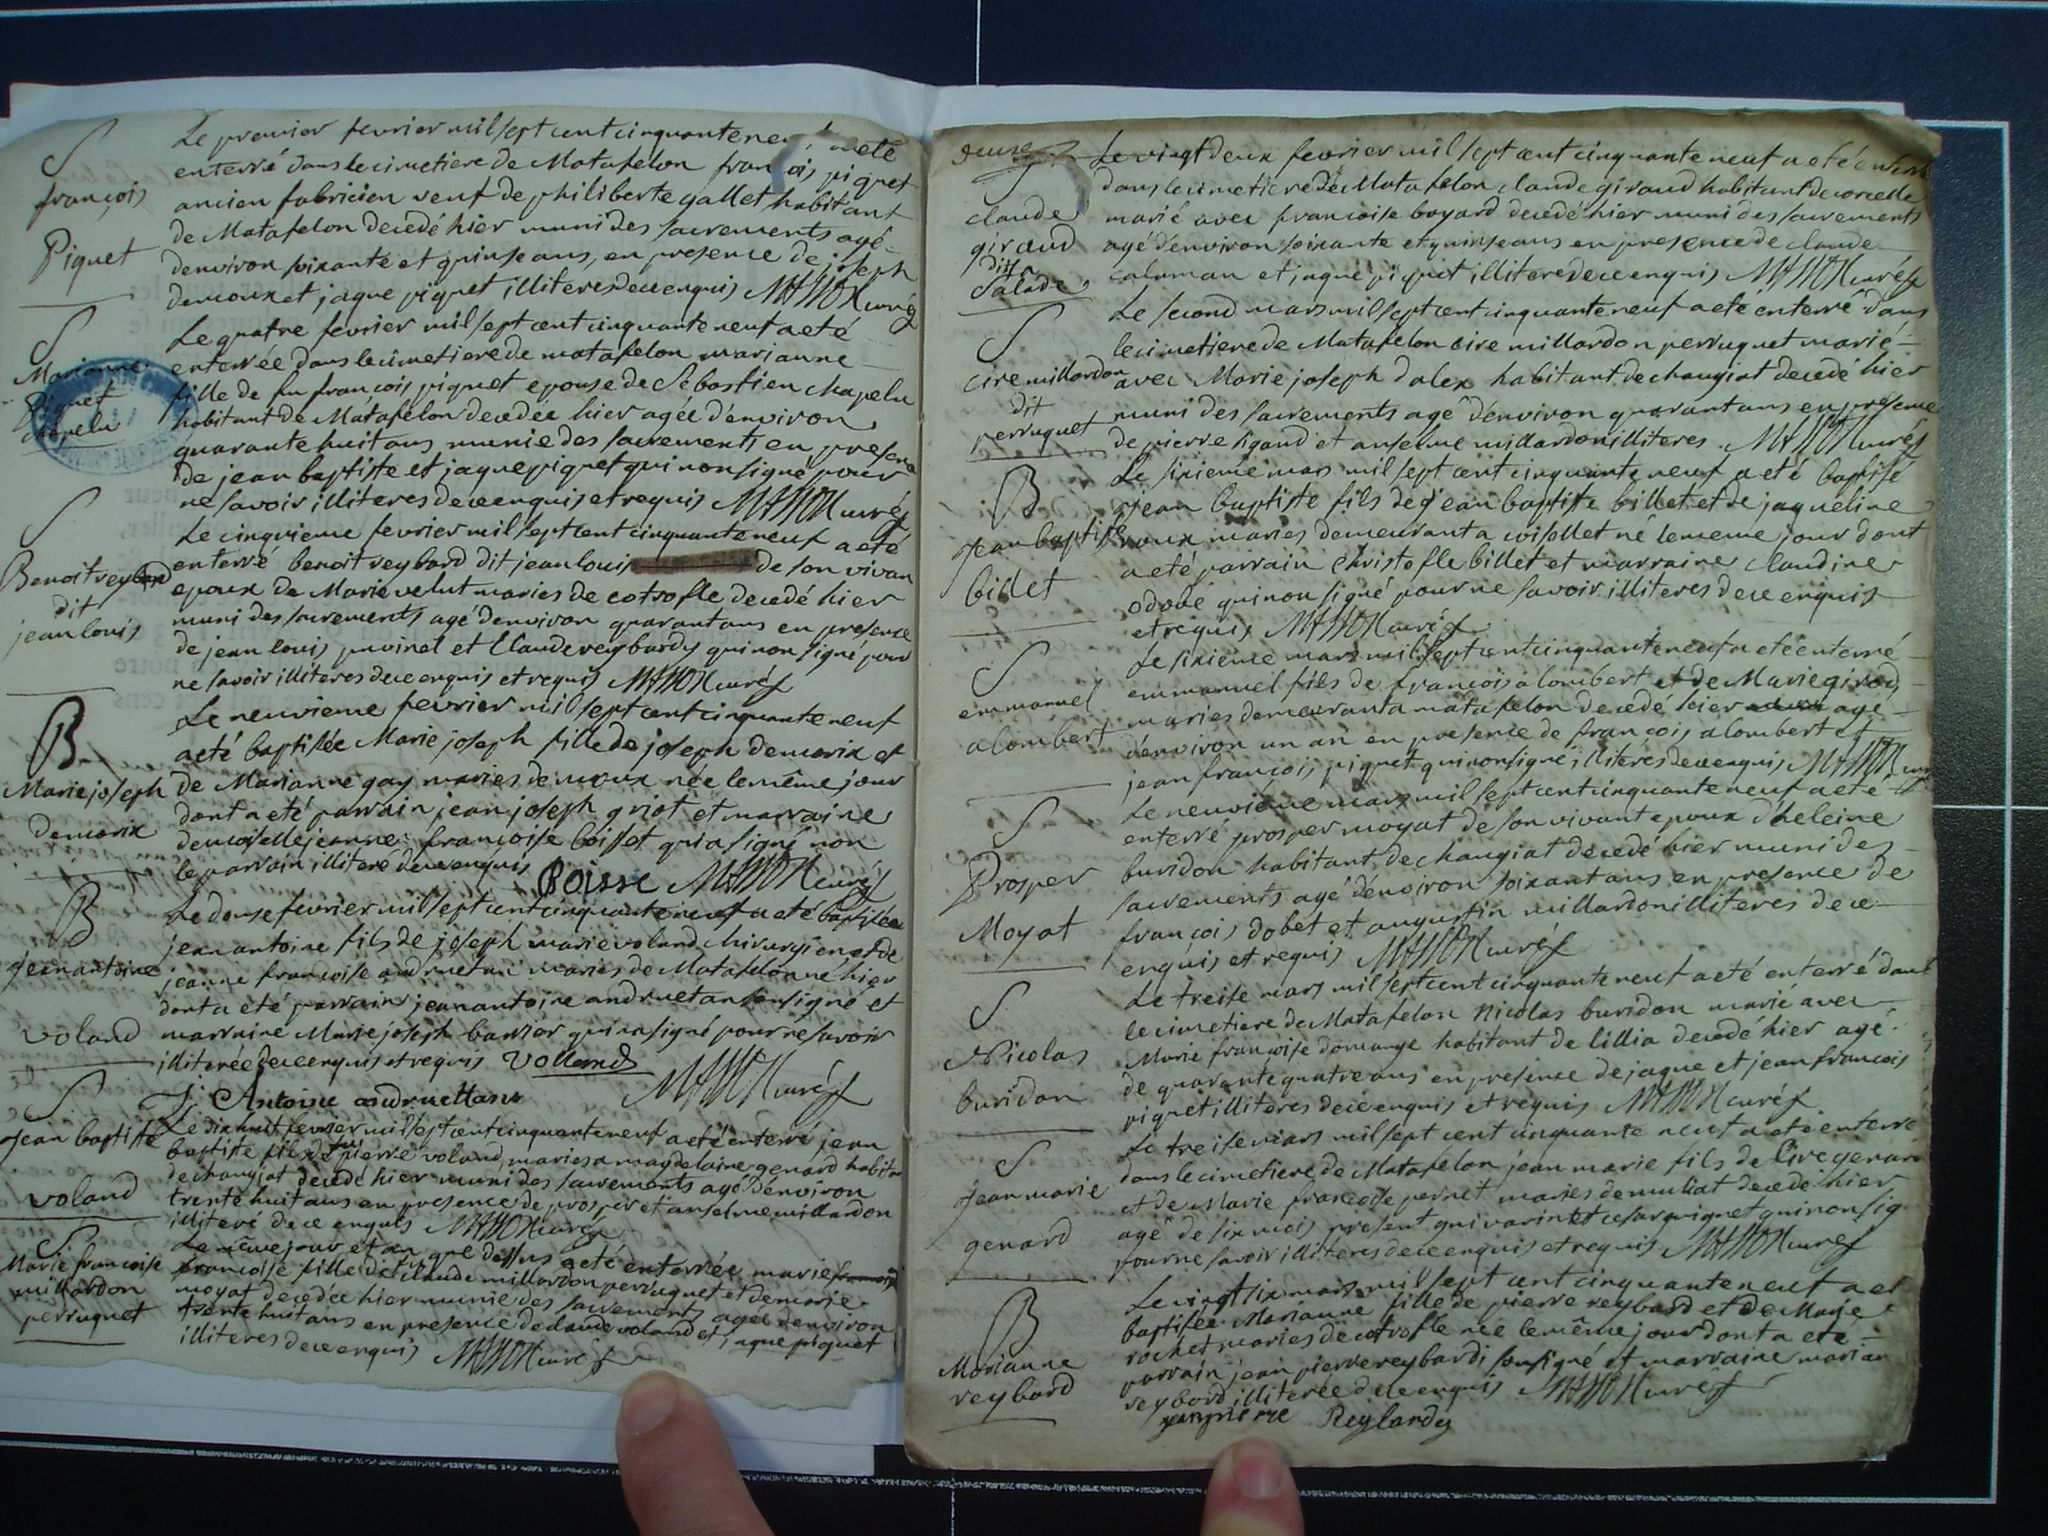 S
françois
Piquet
Le premier fevrier mil sept cent cinquante neuf a eté
enterré dans le cimetiere de Matafelon françois piquet
ancien fabricien veuf de philiberte gallet habitant
de Matafelon decedé hier muni des sacrements agé
denviron soixante et quinse ans, en presence de joseph
demoux et jaque piquet illiteres de ce enquis MASSON curé
S
Marianne
Piquet
chapelu
Le quatre fevrier mil sept cent cinquante neuf a eté
enterrée dans le cimetiere de matafelon marianne
fille de fu françois piquet epouse de Sebastien chapelu
habitant de Matafelon decedée hier agée d'environ
quarante huit ans munie des sacrements en presence
de jean baptiste et jaque piquet qui non signé pour
ne savoir illiteres de ce enquis et requis MASSON curé
S
Benoit reybard
dit
jean louis
Le cinqvieme fevrier mil sept cent cinquante neuf a eté
enterré benoit reybard dit jean louis de son vivan
epoux de Marie velut maries de cotrofle decedé hier
muni des sacrements agé d'environ quarant ans en presence
de jean louis puvinel et Claude reybardy qui non signé pour
ne savoir illiteres de ce enquis et requis MASSON curé
B
Marie joseph
demorix
Le neuvieme fevrier mil sept cent cinquante neuf
a eté baptisée Marie joseph fille de joseph demorix et
de Marianne gay maries de moux née le même jour
dont a eté parrain jean joseph griot et marraine
demoiselle jeanne françoise boisset qui a signé non
le parrain illiteré de ce enquis
Boisse MASSON curé
B
jean antoine
voland
Le douse fevrier mil sept cent cinquante neuf a eté baptisée
jean antoine fils de joseph marie voland chirurgien et de
jeanne françoise andruetan maries de Matafelon né hier
dont a eté parrain jean antoine andruetan sousigné et
marraine Marie joseph qui n'a signé pour ne savoir
illiterée de ce enquis et requis Volland
J Antoine andruettans MASSON curé
S
Jean baptiste
voland
Le dix huit fevrier mil sept cent cinquante neuf a eté enterré jean
baptiste fils de fu pierre voland, maries a magdelaine genard habitan
de changiat decedé hier muni des sacrements agé d'environ
trente huit ans en presence de prosper et anselme millardon
illiteré de ce enquis MASSON curé
S
Marie françoise
millardon
perruquet
Le même jour et an que dessus a eté enterrée marie
françoise fille de claude millardon perruquet et de marie
moyat decedée hier munie des sacrements agée denviron
trente huit ans en presence de claude voland et jaque piquet
illiteres de ce enquis MASSON curé
S
claude
giraud
dit
Salade
Le vingt deux fevrier mil sept cent cinquante neuf a eté enterré
dans le cimetiere de Matafelon claude giraud habitant de corcelle
marié avec françoise boyard decedé hier muni des sacrements
agé d'environ soixante et quinse ans en presence de claude
calaman et jaque piquet illitere de ce enquis MASSON curé
S
cire millardon
dit
perruquet
Le second mars mil sept cent cinquante neuf a eté enterré dans
le cimetiere de Matafelon cire millardon perruquet marié
avec Marie joseph dalex habitant de changiat decedé hier
muni des sacrements agé d'environ quarant ans en presence
de pierre ligand et anselme millardon illiteres MASSON curé
B
Jean baptiste
billet
Le sixieme mars mil sept cent cinquante neuf a eté baptisé
jean baptiste fils de jean baptiste billet et de jaqueline
roux maries demeurant a coisollet né le meme jour dont
a eté parrain christofle billet et marraine claudine
odobé qui non signé pour ne savoir illiteres de ce enquis
et requis MASSON curé
S
emmanuel
alombert
Le sixieme mars mil sept cent cinquante neuf a eté enterré
emmanuel fils de françois alombert et de Marie girod
maries demeurant a matafelon decedé hier agé
d'environ un an en presence de françois alombert et
jean françois piquet qui non signé illiteres de ce enquis MASSON curé
S
Prosper
Moyat
Le neuvieme mars mil sept cent cinquante neuf a eté
enterré prosper moyat de son vivant epoux d'heleine
buridon habitant de changiat decedé hier muni des
sacrements agé d'environ soixant ans en presence de
françois dobet et augustin millardon illiteres de ce
enquis et requis MASSON curé
S
Nicolas
buridon
Le treise mars mil sept cent cinquante neuf a eté enterré dans
le cimetiere de Matafelon Nicolas buridon marié avec
Marie françoise domange habitant de lillia decedé hier agé
de quarante quatre ans en presence de jaque et jean françois
piquet illiteres de ce enquis et requis MASSON curé
S
Jean marie
genard
Le treise mars mil sept cent cinquante neuf a eté enterré
dans le cimetiere de Matafelon jean marie fils de Cire genard
et de Marie françoise pernet maries de muliat decedé hier
agé de six mois present qui varintet cesar piquet qui non sig
pour ne savoir illiteres de ce enquis et requis MASSON curé
B
Marianne
reybard
Le vingt six mars mil sept cent cinquante neuf a eté
baptisée Marianne fille de pierre reybard et de Marie
rochet maries de cotrofle née le même jour dont a eté
parrain jean pierre reybardi sousigné et marraine marian
reybard illiterée de ce enquis MASSON curé
jean pierre Reylardy